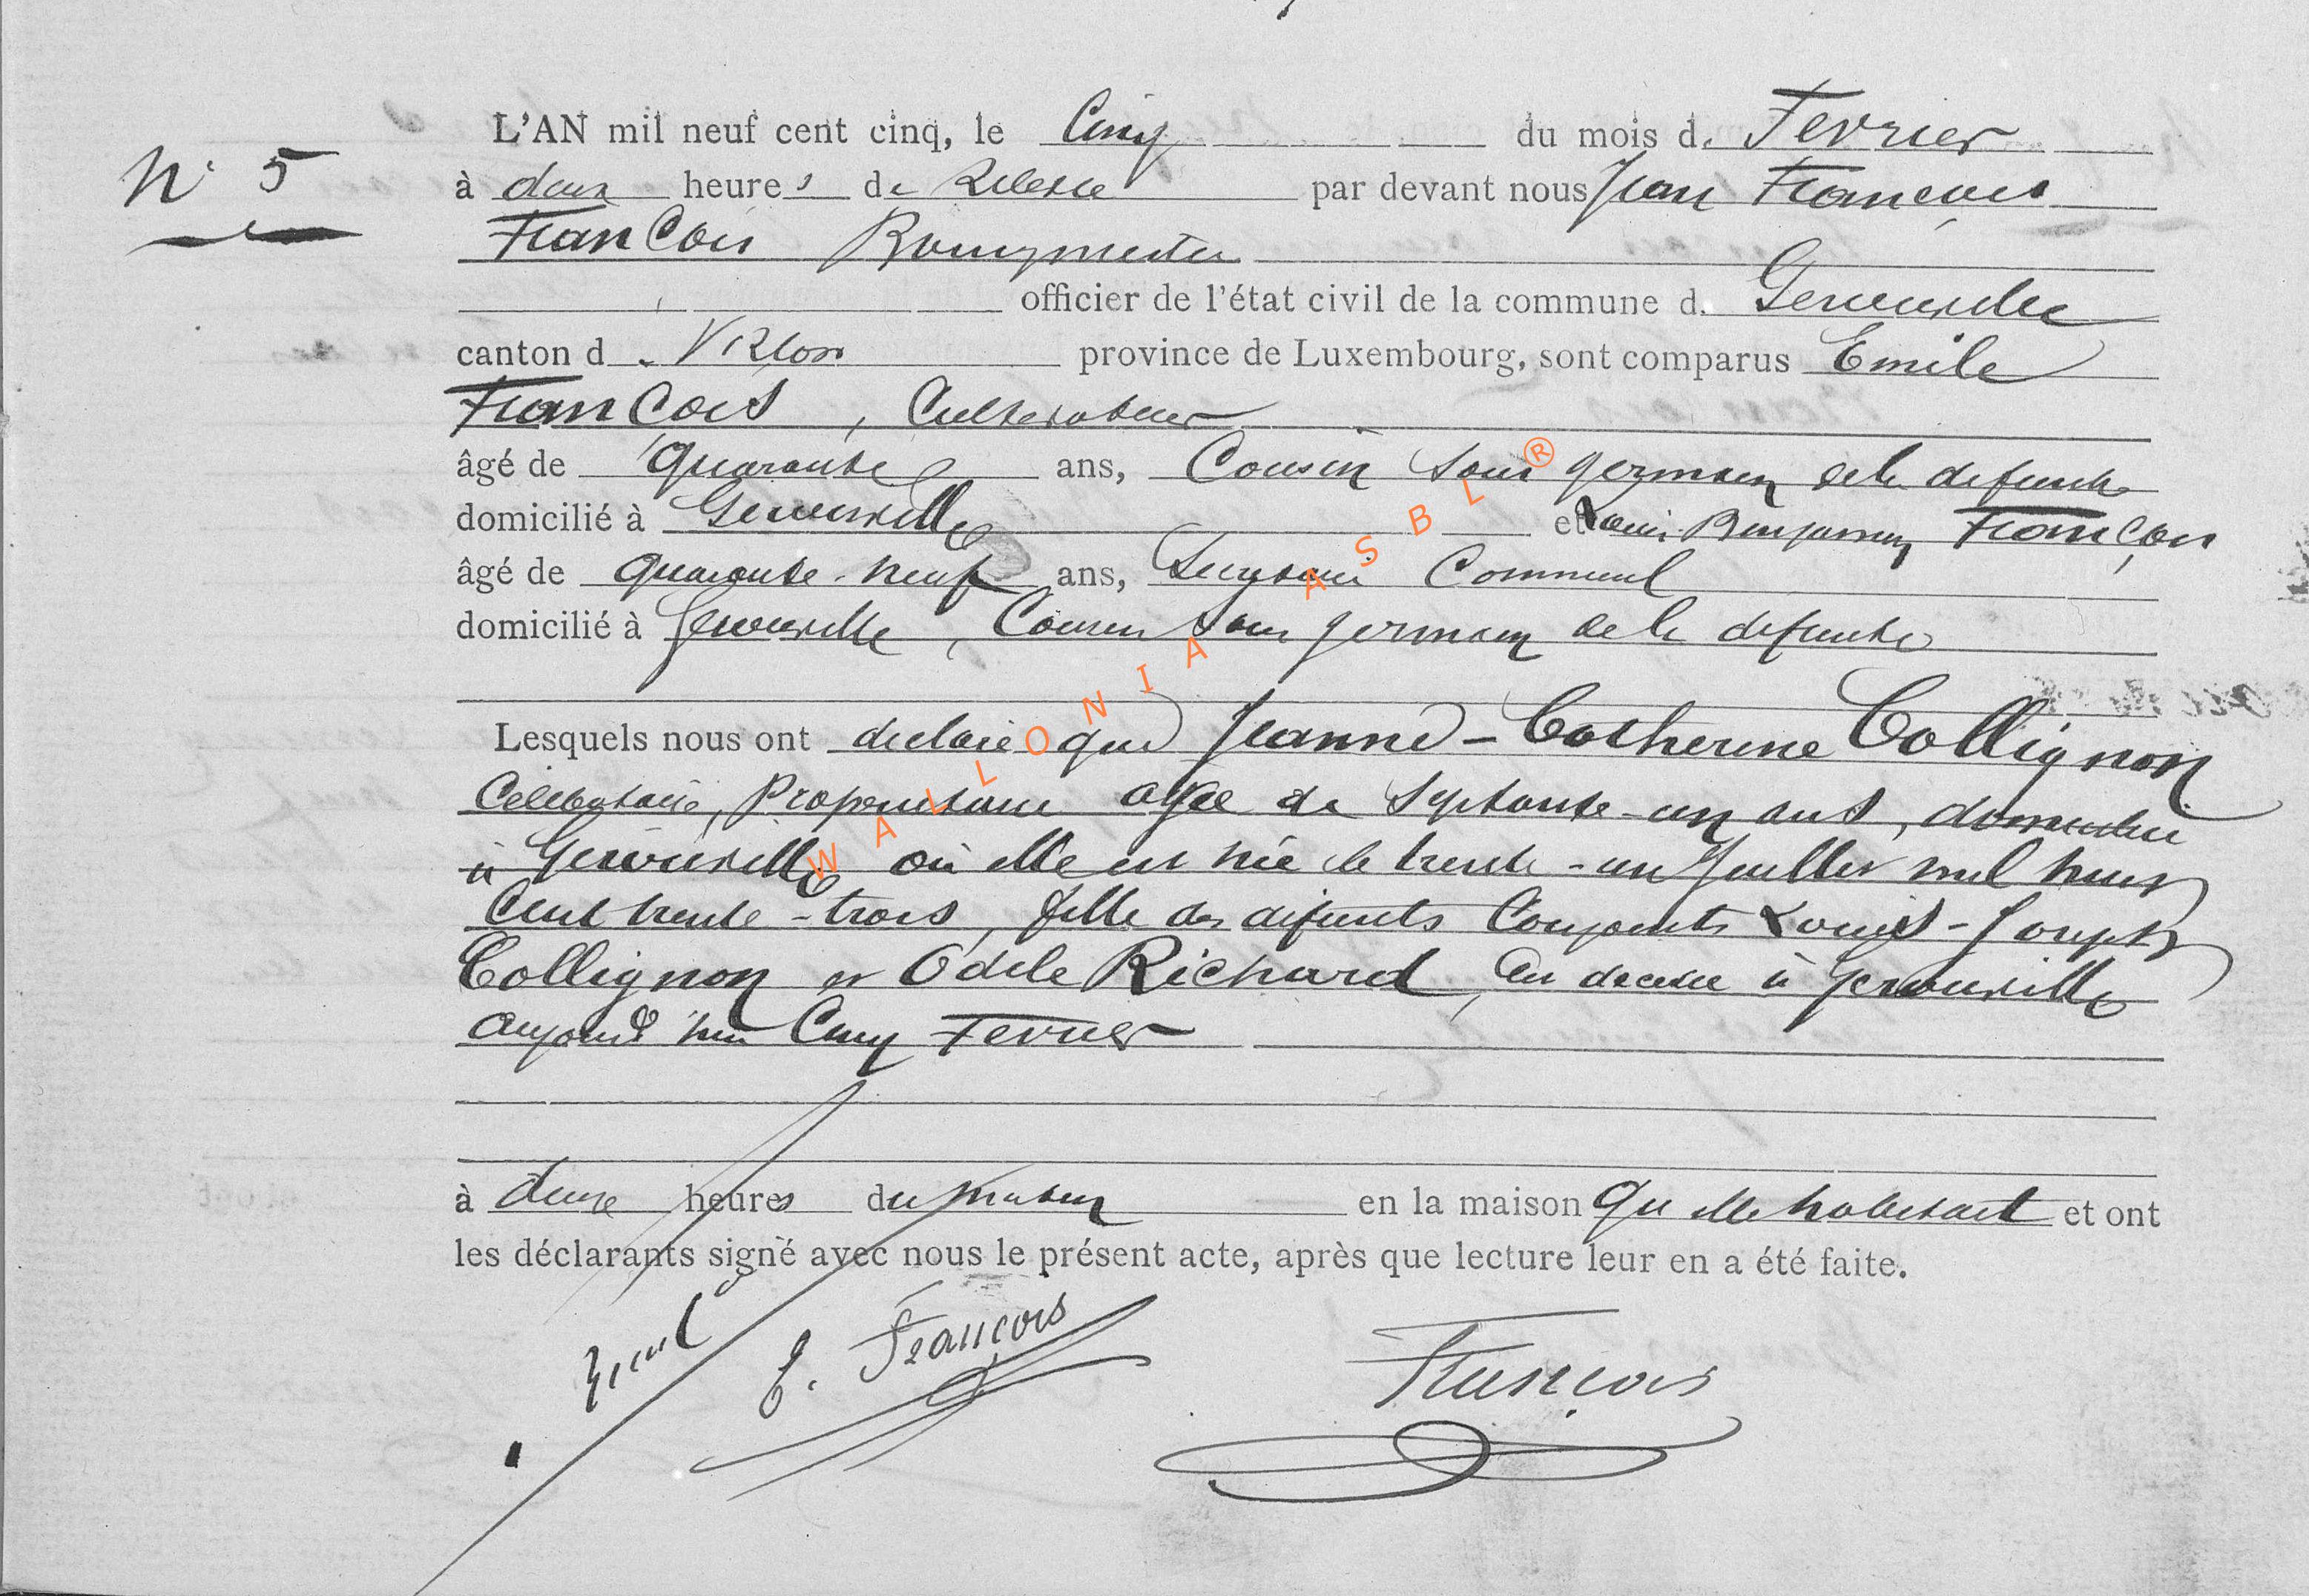 N° 5
L'AN mil neuf cent cinq, le Cinq du mois d. Fevrier
à deux heures de Relevée par devant nous Jean François
François Bourgmestre
officier de l'état civil de la commune d. Gerouville
canton d. Virton province de Luxembourg, sont comparus Emile
François, Cultivateur
âgé de quarante ans, Cousin sous germain de la defunte
domicilié à Gerouville et Louis Benjamin François
âgé de quarante-neuf ans, Communal
domicilié à Gerouville, Cousin sous germain de la defunte
Lesquels nous ont declaré que Jeanne-Catherine Collignon
Celibataire, Propriétaire agée de Septante-un ans, domiciliée
à Gerouville où elle est née le trente-un Juillet mil huit
Cent trente-trois, fille des défunts Conjoints Louis-Joseph
Collignon et Odile Richard, est decedée à Gerouville
aujourd'hui Cinq Fevrier
à heures du matin en la maison qu'elle habitait et ont
les déclarants signé avec nous le présent acte, après que lecture leur en a été faite.
E. François
François
WALLONIA ASBL ®